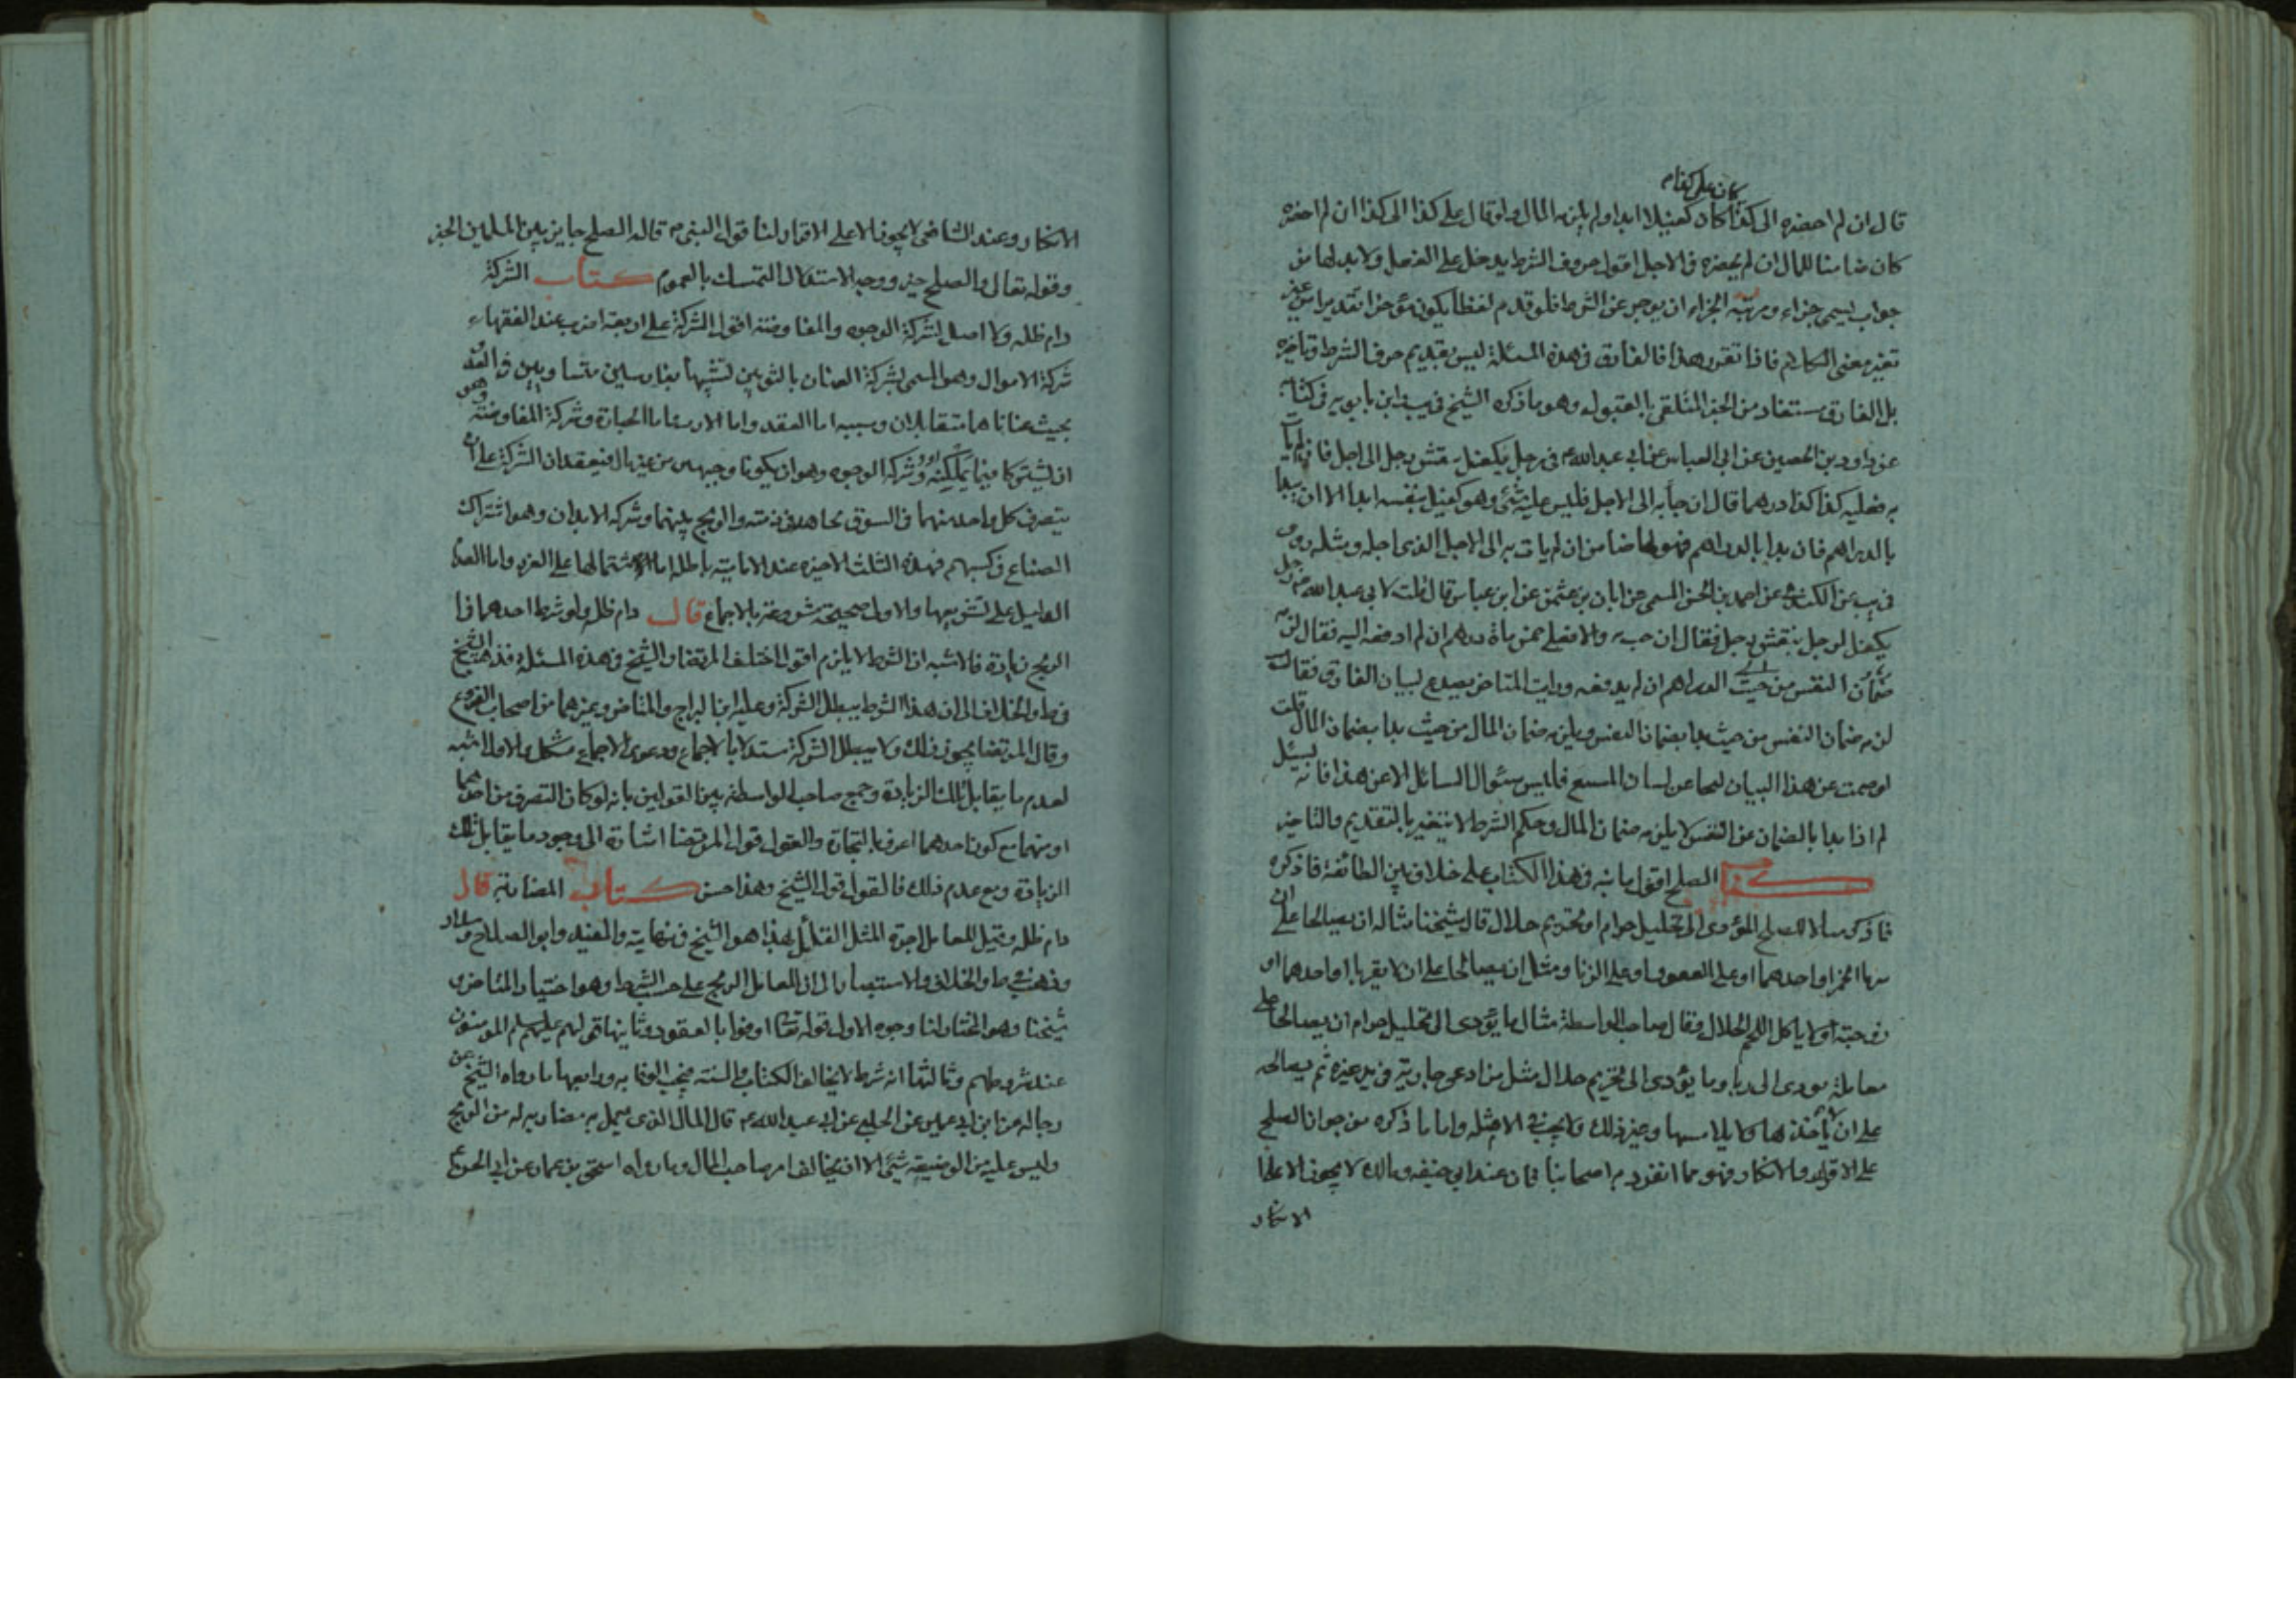 كان على كذا م
قال ان لم احضره الى كذا كان كفيلا ابدا ولم يلزمه المال ولو قال على كذا الى كذا ان لم احضره
كان ضامنا للمال ان لم يحضره فى الاجل اقول حروف الشرط يدخل على الفعل ولا بد لها من
جواب ليسمى جزاء ومرتبة الجزاء ان يوجر عن الشرط فلو قدم لفظا يكون مؤخرا تقديرا من غير
تغير معنى الكلام فاذا تقرر هذا فالفارق فى هذه المسئلة ليس تقديم حرف الشرط وتاخيره
بل الفارق مستفاد من الخبر المتلقى بالقبول وهو ما ذكره الشيخ فى يب ابن بابويه فى كتابه
عن داود بن الحصين عن ابى العباس عن ابى عبد الله م فى رجل يكفل بنفس رجل الى اجل فان لم يات
به فعليه كذا كذا درهما قال ان جا به الى الاجل فليس عليه شئ وهو كفيل بنفسه ابدا الا ان يبدا
بالدراهم فان بدا بالدراهم فهو لها ضامن ان لم يات به الى الاجل الذى اجله ومثله روى
فى يب عن الكندى عن احمد بن الحسن المسمى عن ابان بن عثمن عن ابن عباس قال قلت لابى عبد الله م رجل
يكفل لرجل بنفس رجل فقال ان جب به والا فعلى خمس ماة درهم ان لم ادفعه اليه فقال لزمه
ضمان النفس من حيث الدراهم ان لم يدفعه ورايت المتاخر يصدع لبيان الفارق فقال
لزمه ضمان النفس من حيث بدا بضمان النفس ويلزمه ضمان المال من حيث بدا بضمان المال قلت
لو صمت عن هذا البيان لمحا عن لسان المسمع فليس سئوال السائل الا عن هذا فانه يسئل
لم اذا بدا بالضمان عن النفس لا يلزمه ضمان المال وحكم الشرط لا يتغير بالتقديم والتاخير
كتاب الصلح اقول ما بنه فى هذا الكتاب على خلاف بين الطائفة فاذكره
فاذكر مثالا للصلح المؤدى الى تحليل حرام او تحريم حلال قال شيخنا مثاله ان يصالحا على ان
يشربا الخمر او احدهما او على العصوب او على الزنا ومثل ان يصالحا على ان لا يقربا او احدهما او
زوجته او لا ياكل اللحم الحلال وقال صاحب الواسطة مثال ما يؤدى الى تحليل حرام ان يصالحا على
معاملة مودى الى ربا وما يؤدى الى تحريم حلال مثل من ادعى جارية فى يد غيره ثم يصالحه
على ان لا ياخذها ولا يلامسها وغير ذلك ولا يخفى الامثله واما ما ذكره من جواز الصلح
على الاقرار والانكار فهو مما انفرد به اصحابنا فان عند ابى حنيفه ومالك لا يجوز الا على
الانكار
الانكار وعند الشافعى لا يجوز الا على الاقرار لنا قول النبى م قاله الصلح جايز بين المسلمين الخبر
وقوله تعالى والصلح خير ووجه الاستدلال التمسك بالعموم كتاب الشركة
دام ظله ولا اصل لشركة الوجوه والمفاوضة اقول الشركة على اربعة اضرب عند الفقهاء
شركة الاموال وهو المسمى بشركة العنان بالنونين تشبيها بفارسين متساويين فى العدو
بحيث عنانا هما متقابلان وسببه اما العقد واما الارث واما الحيازة وشركة المفاوضة وهى
ان يشتركا فيما يملكنه وشركة الوجوه وهو ان يكونا وجيهين من غير مال فيعقدان الشركة على ان
يتصرف كل واحد منهما فى السوق بجاهه فى ذمته والربح بينهما وشركة الابدان وهو اشتراك
الصناع فى كسبهم فهذه الثلث الاخيره عند الامامية باطله اما لاشتمالها على الغرر واما لعدم
الدليل على تشريعها والاول صحيحة مشروعة بالاجماع قال دام ظله ولو شرط احدهما فى
الربح زيادة فالاشبه ان الشرط لا يلزم اقول اختلف المرتضا والشيخ فى هذه المسئلة فذهب الشيخ
فى ط والخلاف الى ان هذا الشرط يبطل الشركة وعليه ابن البراج والمتاخر وغيرهما من اصحاب الفروع
وقال المرتضا يجوز ذلك ولا يبطل الشركة مستدلا بالاجماع ودعوى الاجماع مشكل والاول اشبه
لعدم ما يقابل تلك الزيادة وجمع صاحب الواسطة بين القولين بانه لو كان التصرف من احدهما
او منهما مع كون احدهما اعرف بالتجارة والقول قول المرتضا اشارة الى وجود ما يقابل تلك
الزيادة ومع عدم ذلك فالقول قول الشيخ وهذا حسن كتاب المضاربة قال
دام ظله وقيل للعامل اجرة المثل القائل بهذا هو الشيخ فى نهايته والمفيد وابو الصلاح وسلار
وذهب فى ط والخلاف والاستبصار الى ان للعامل الربح على حسب الشرط وهو اختيار المتاخر و
شيخنا وهو المختار لنا وجوه الاول قوله تعا اوفوا بالعقود وثانيها قولهم عليهم السلم المومنون
عند شروطهم وثالثها انه شرط لا يخالف الكتاب والسنه فيجب الوفا به ورابعها ما رواه الشيخ عن
رجاله عن ابن ابى عمير عن الحلبى عن ابى عبد الله م قال المال الذى يعمل به مضاربه له من الربح
وليس عليه من الوضيعة شئ الا ان يخالف امر صاحب المال وما رواه اسحق بن عمار عن ابى الحسن ع